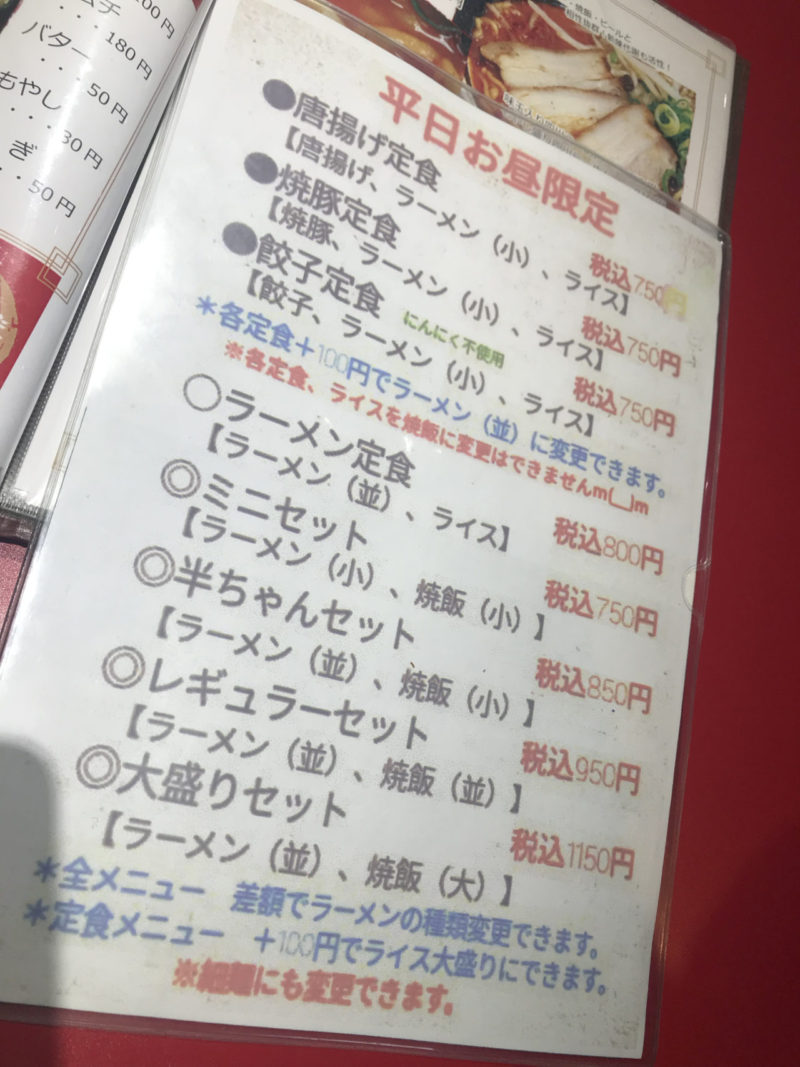 100円
ムチ
・・・180円
バター
・・・50円
もやし
・・・30円
ぎ
・・50円
・焼飯・ビールと
平日お昼限定
●唐揚げ定食 税込750円
【唐揚げ、ラーメン（小）、ライス】
●焼豚定食 税込750円
【焼豚、ラーメン（小）、ライス】
●餃子定食 にんにく不使用 税込750円
【餃子、ラーメン（小）、ライス】
＊各定食＋100円でラーメン（並）に変更できます。
※各定食、ライスを焼飯に変更はできませんm(__)m
○ラーメン定食 税込800円
【ラーメン（並）、ライス】
◎ミニセット 税込750円
【ラーメン（小）、焼飯（小）】
◎半ちゃんセット 税込850円
【ラーメン（並）、焼飯（小）】
◎レギュラーセット 税込950円
【ラーメン（並）、焼飯（並）】
◎大盛りセット 税込1150円
【ラーメン（並）、焼飯（大）】
＊全メニュー 差額でラーメンの種類変更できます。
＊定食メニュー ＋100円でライス大盛りにできます。
※細麺にも変更できます。